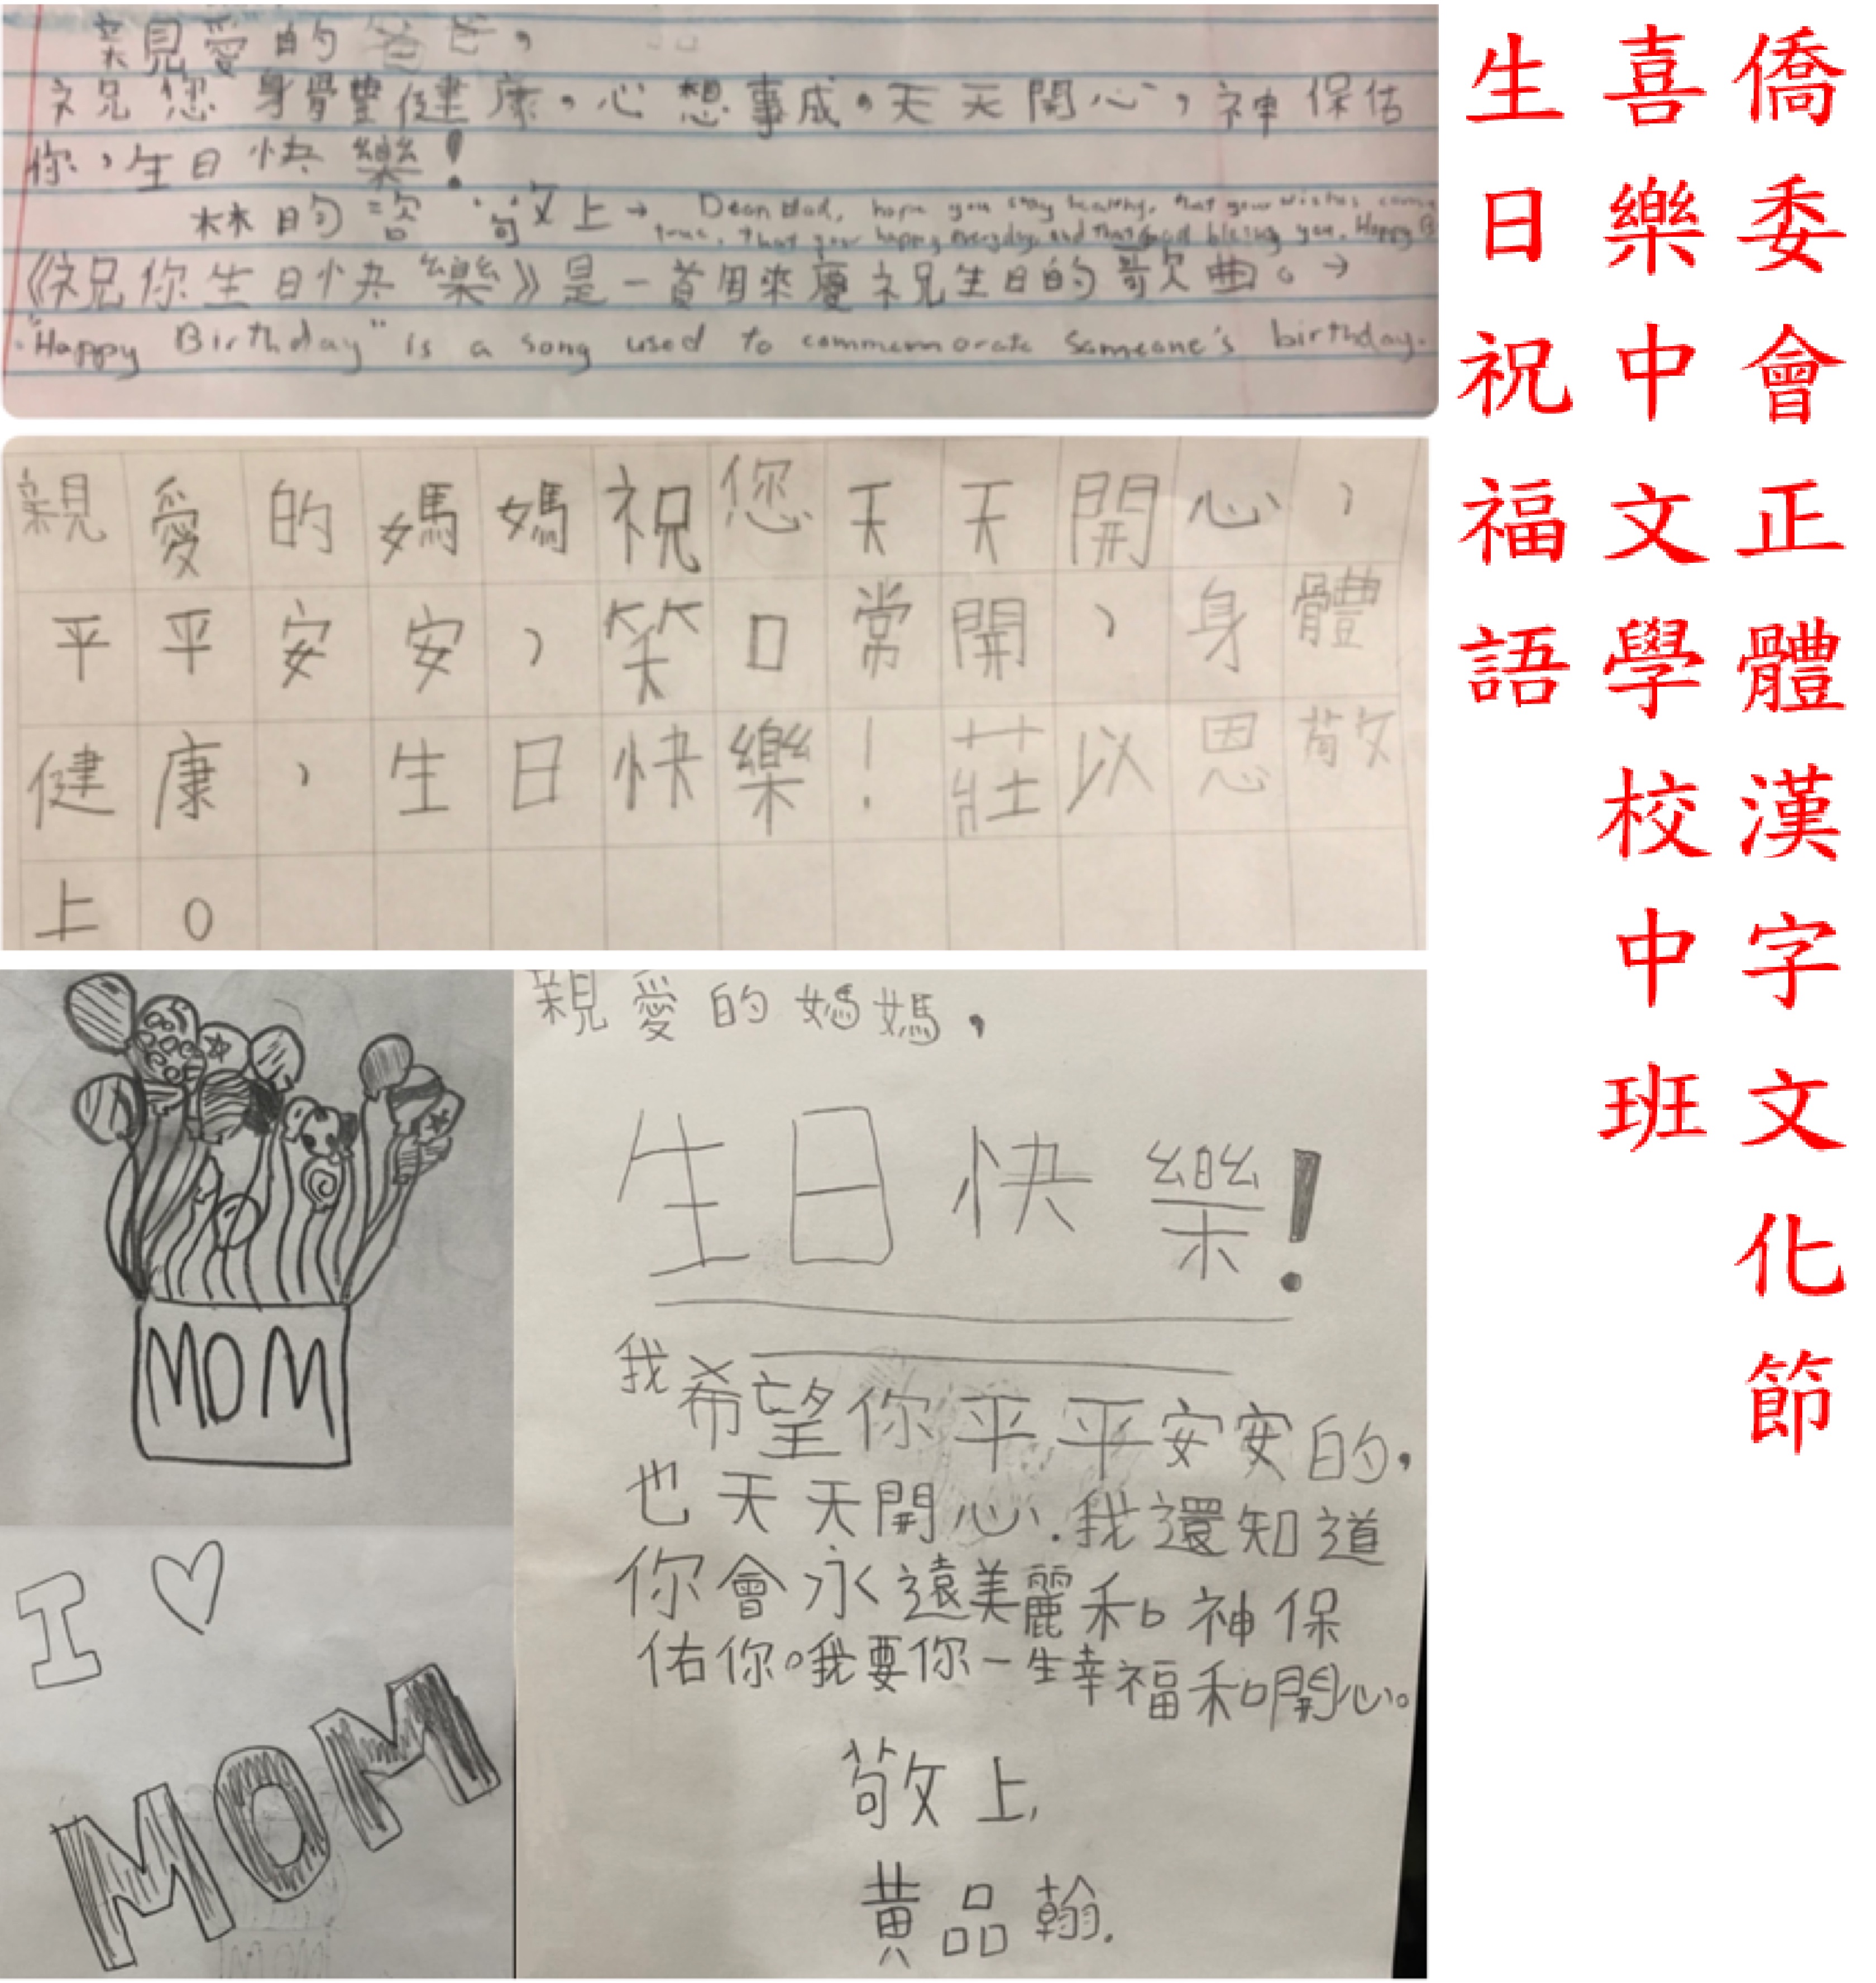 僑委會正體漢字文化節
喜樂中文學校中班
生日祝福語
親愛的爸爸,
祝您身體健康,心想事成,天天開心,神保佑
你,生日快樂!
林昀 敬上→ Dear dad, hope you stay healthy, that your wishes come
true, that you happy everyday, and that god blesing you. Happy B
《祝你生日快樂》是一首用來慶祝生日的歌曲。→
"Happy Birthday" is a song used to commemorate someone's birthday.
親愛的媽媽祝您天天開心,
平平安安,笑口常開,身體
健康,生日快樂!莊以恩敬
上。
MOM
I ♡
MOM
親愛的媽媽,
生日快樂!
我希望你平平安安的,
也天天開心.我還知道
你會永遠美麗和神保
佑你。我要你一生幸福和開心。
敬上,
黄品翰.